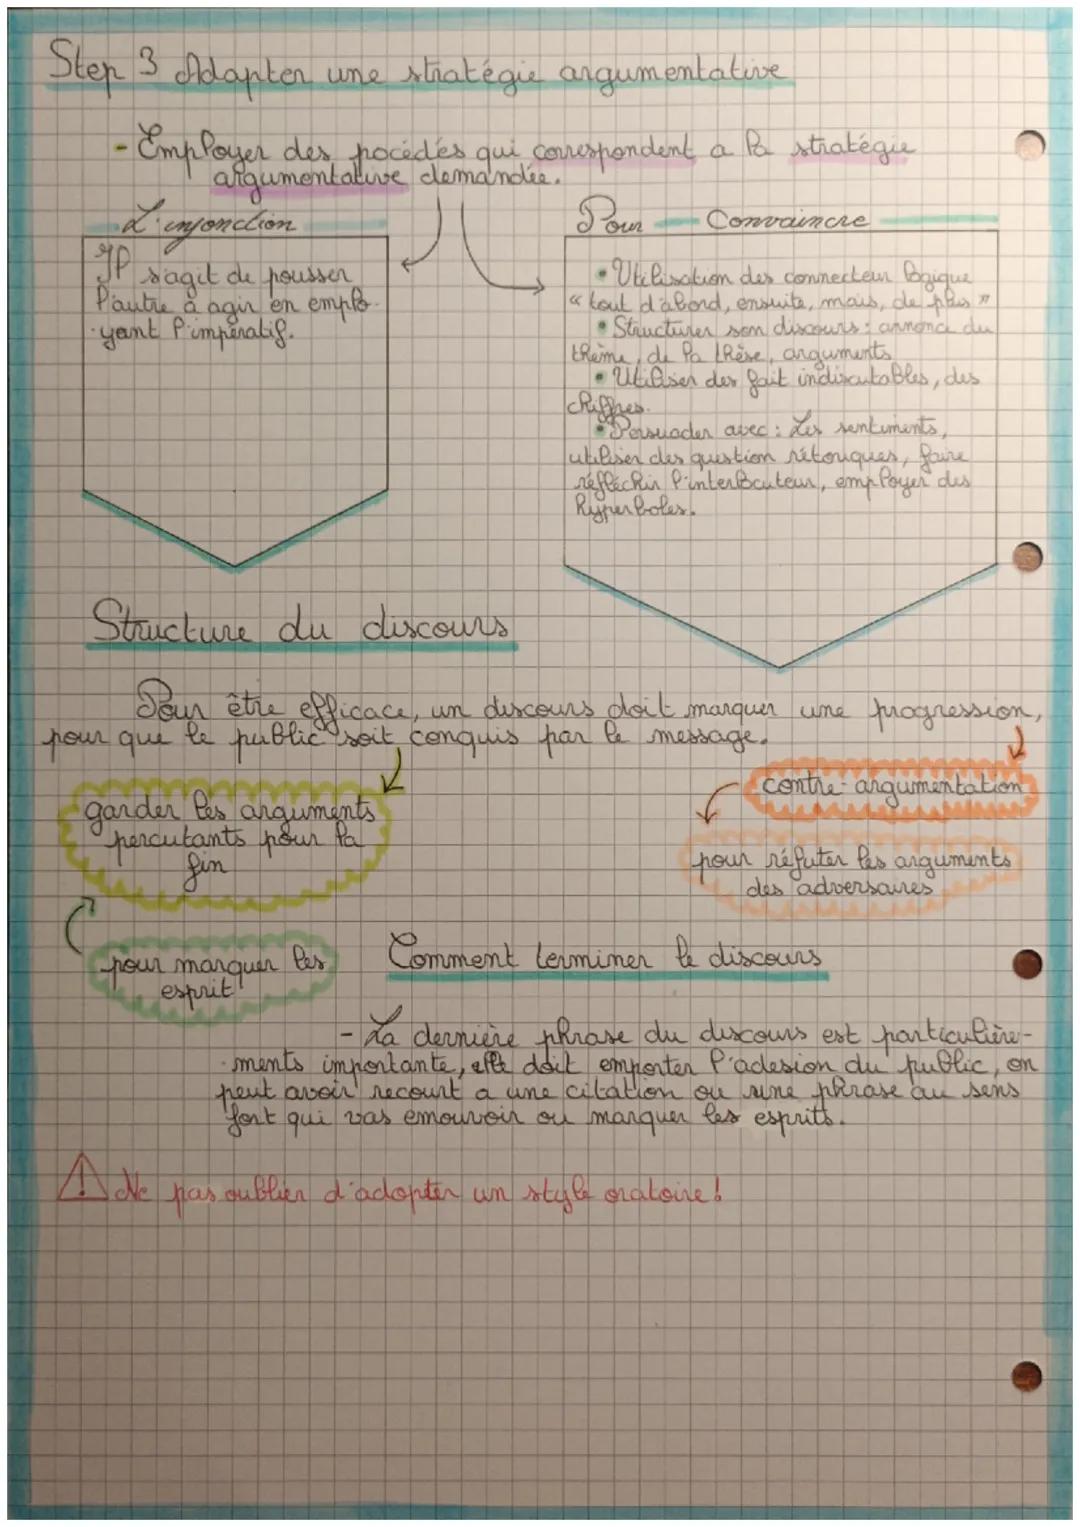 Step 3 Adapter une stratégie argumentative
- Employer des pocédés qui correspondent a la stratégie
argumentative demandée.
L'injonction
Il s'agit de pousser
l'autre à agir en emplo-
yant l'impératif.
Pour Convaincre
• Utilisation des connecteur logique
« tout d'abord, ensuite, mais, de plus »
• Structurer son discours : annonce du
thème, de la thèse, arguments
• Utiliser des fait indiscutables, des
chiffres.
• Persuader avec : Les sentiments,
utiliser des question rétoriques, faire
réfléchir l'interlocuteur, employer des
hyperboles.
Structure du discours
Pour être efficace, un discours doit marquer une progression,
pour que le public soit conquis par le message.
garder les arguments
percutants pour la
fin
pour marquer les
esprit
contre-argumentation
pour réfuter les arguments
des adversaires
Comment terminer le discours
- La dernière phrase du discours est particulière-
ments importante, elle doit emporter l'adesion du public, on
peut avoir recourt a une citation ou une phrase au sens
fort qui vas emouvoir ou marquer les esprits.
⚠ Ne pas oublier d'adopter un style oratoire !